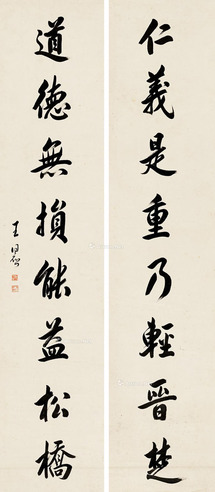 仁義是重乃輕晉楚
道德無損能益松橋
王同愈